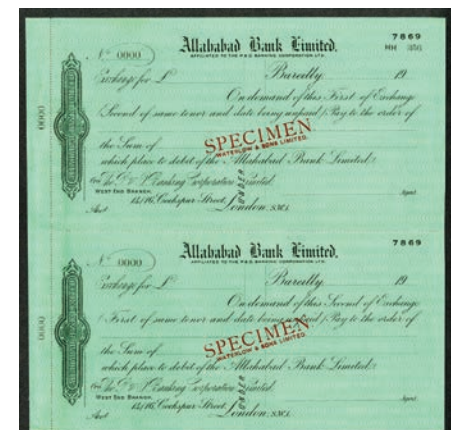 7869
Nº 0000
Allahabad Bank Limited,
MH 356
AFFILIATED TO THE P.& O. BANKING CORPORATION LTD.
Exchange for £ Bareilly, 19
On demand of this First of Exchange
(Second of same tenor and date being unpaid) Pay to the order of
the Sum of
SPECIMEN
WATERLOW & SONS LIMITED.
which place to debit of the Allahabad Bank Limited:
The P. & O. Banking Corporation Limited.
UNDER
WEST END BRANCH.
Agent
14/16, Cockspur Street, London, S.W.1.
Acct
0000
7869
Nº 0000
Allahabad Bank Limited,
AFFILIATED TO THE P.& O. BANKING CORPORATION LTD.
Exchange for £ Bareilly, 19
On demand of this Second of Exchange
(First of same tenor and date being unpaid) Pay to the order of
the Sum of
SPECIMEN
WATERLOW & SONS LIMITED.
which place to debit of the Allahabad Bank Limited:
The P. & O. Banking Corporation Limited.
UNDER
WEST END BRANCH.
Agent
14/16, Cockspur Street, London, S.W.1.
Acct
0000